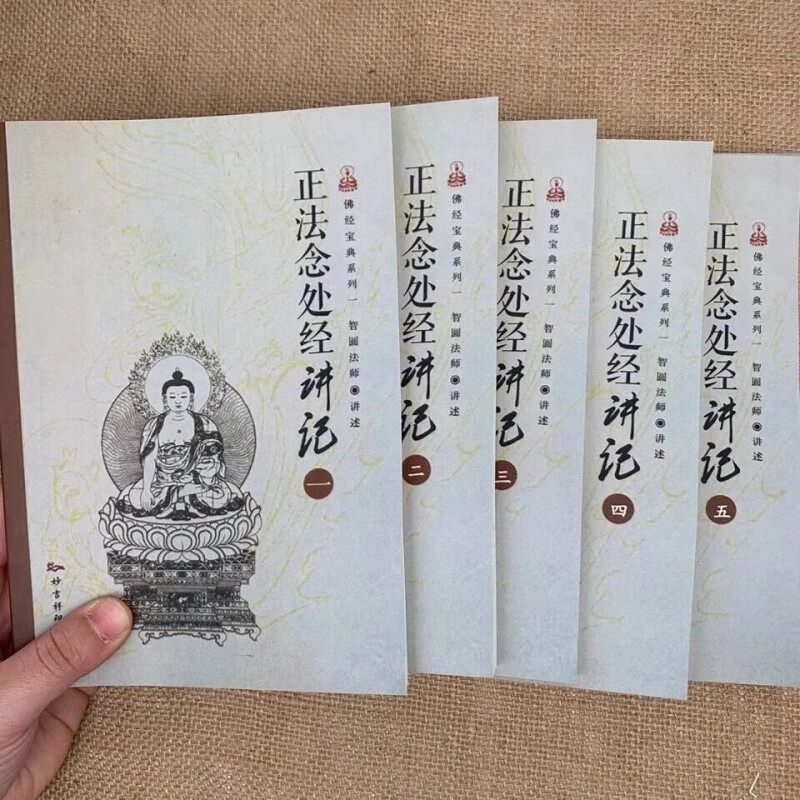 正法念处经讲记
一
佛经宝典系列一 智圆法师 讲述
妙吉祥
正法念处经讲记
二
佛经宝典系列一 智圆法师 讲述
正法念处经讲记
三
佛经宝典系列一 智圆法师 讲述
正法念处经讲记
四
佛经宝典系列一 智圆法师 讲述
正法念处经讲记
五
佛经宝典系列一 智圆法师 讲述